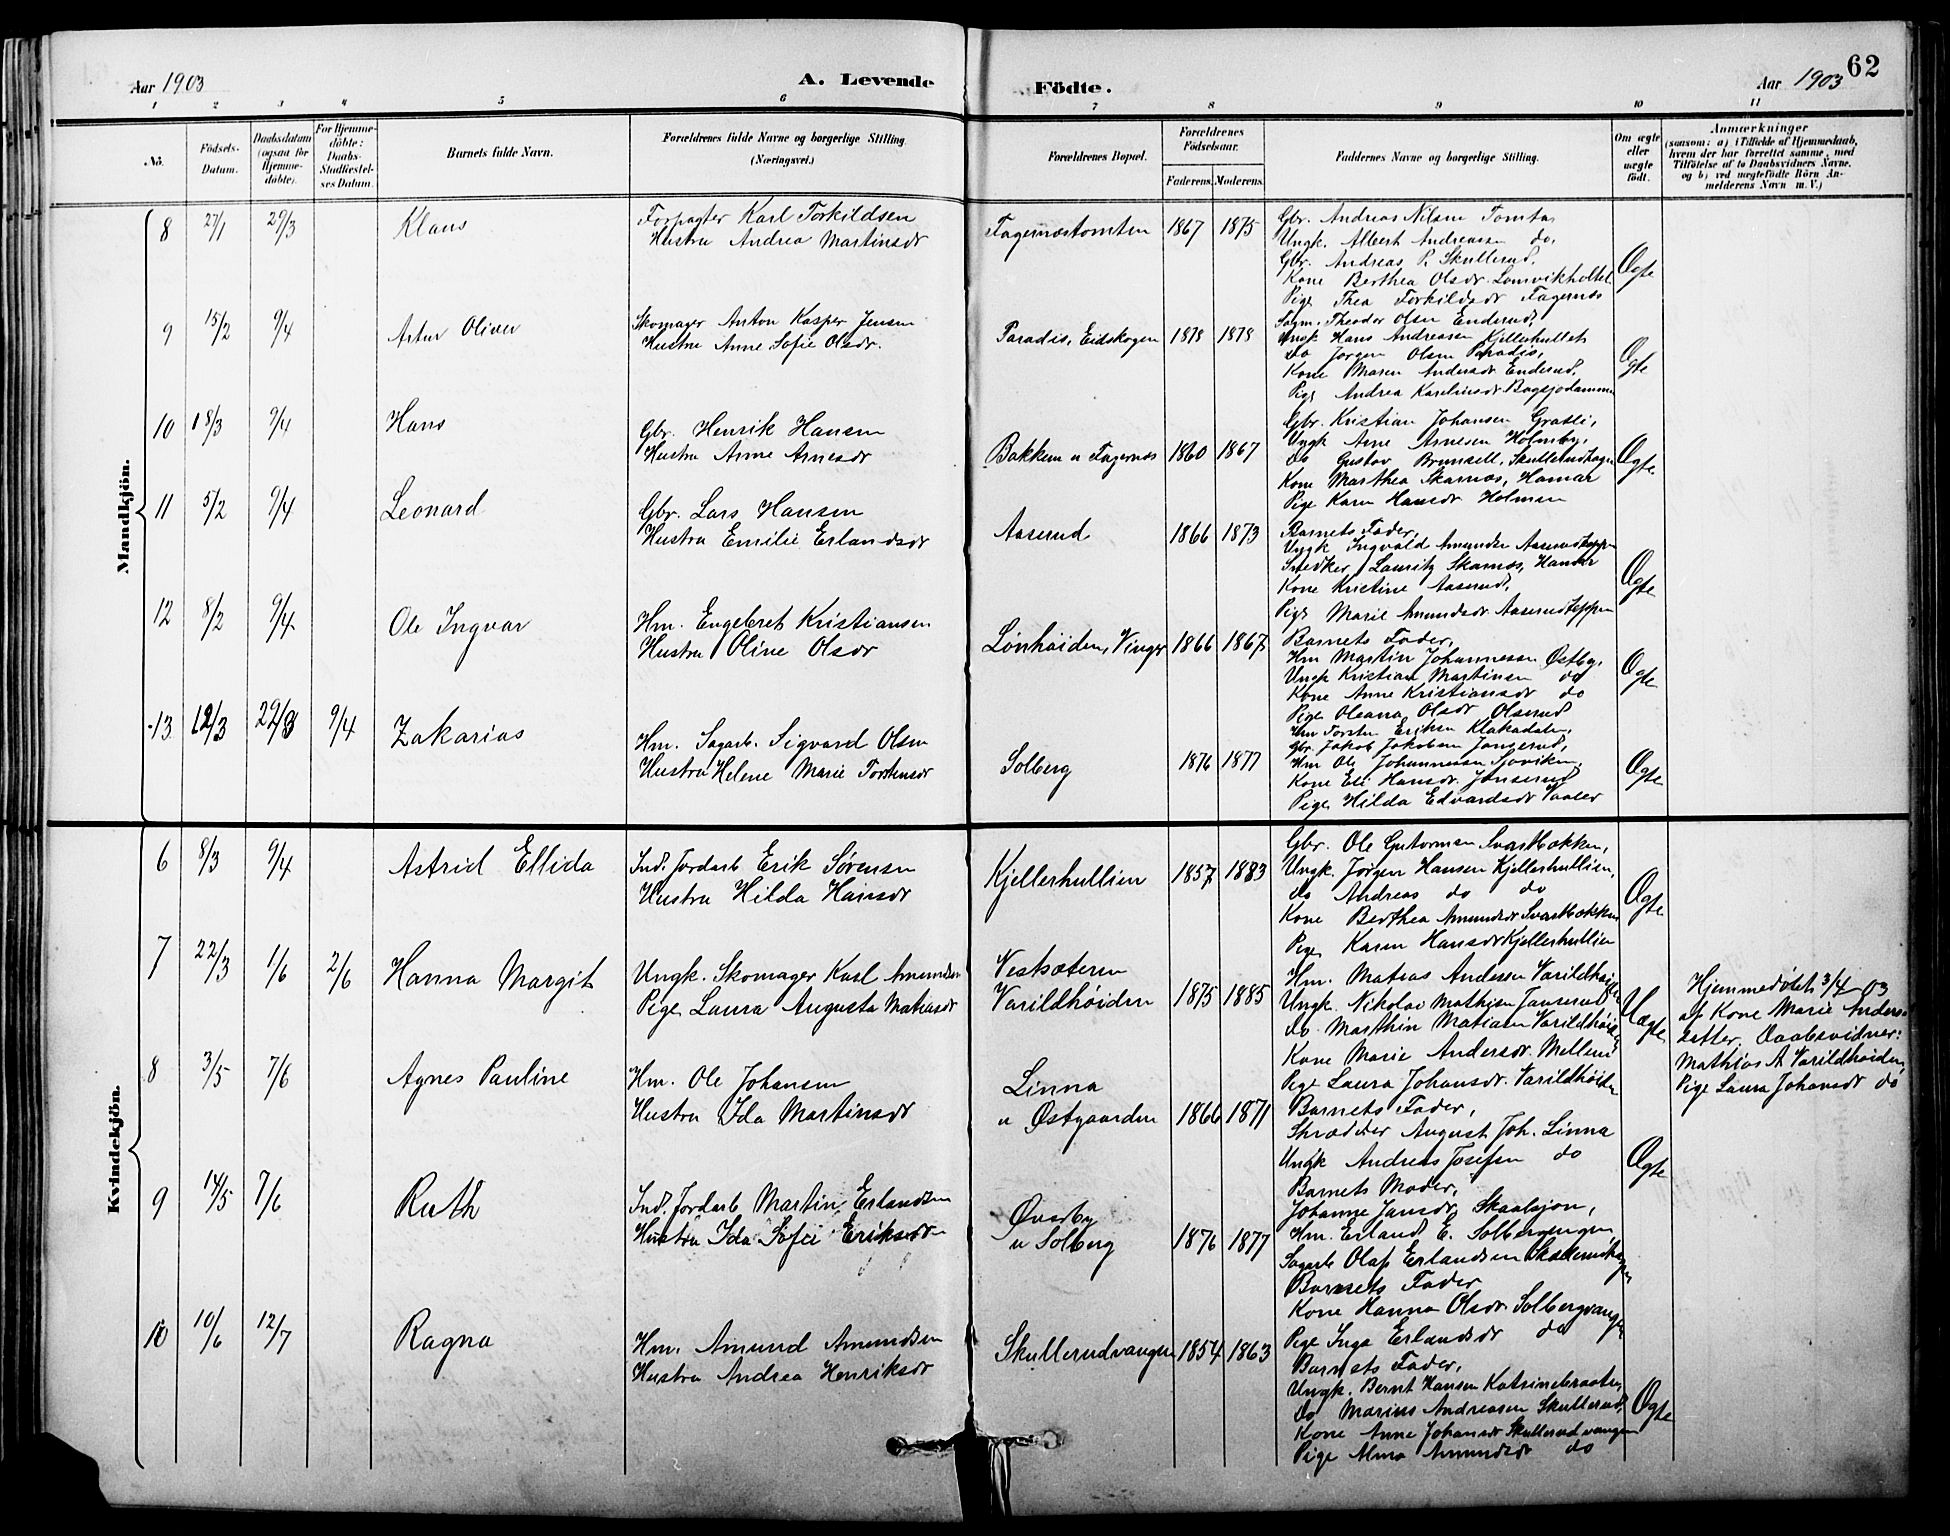 Aar 1903
A. Levende
Födte.
Aar 1903
62
1 2 3 4 5 6 7 8 9 10 11
No.
Födsels-Datum.
Daabsdatum (ogsaa for Hjemmedöbte).
For Hjemmedöbte: Daabs-Stadfæstelses Datum.
Barnets fulde Navn.
Forældrenes fulde Navne og borgerlige Stilling (Næringsvei.)
Forældrenes Bopæl.
Forældrenes Födselsaar.
Faderens. Moderens.
Faddernes Navne og borgerlige Stilling.
Om ægte eller uægte födt.
Anmærkninger
(saasom: a) i Tilfælde af Hjemmedaab,
hvem der har forrettet samme, med
Tilföielse af to Daabsvidners Navne,
og b) ved uægtefödte Börn An-
melderens Navn m. V.)
Mandkjön.
8 27/1 29/3 Klaus
Forpagter Karl Torkildsen
Hustru Andrea Martinsdr
Fagernæstomten 1867 1875
Gbr. Andreas Nilsen Tomta,
Ungk. Albert Andreassen do,
Gbr. Andreas P. Skullerud,
Kone Berthea Olsdr. Lomvikholtet
Pige Thea Torkildsdr Fagernæs
Ægte
9 15/2 9/4 Artur Oliver
Skomager Anton Kasper Jensen
Hustru Anne Sofie Olsdr.
Paradis, Eidskogen 1878 1878
Sagm. Theodor Olsen Enderud,
Ungk Hans Andreassen Kjellerhullet
do Jørgen Olsen Paradis,
Kone Maren Andersdr Enderud,
Pige Andrea Karelinsdr Bogsjodammen
Ægte
10 18/3 9/4 Hans
Gbr. Henrik Hansen
Hustru Anne Arnesdr
Bakken u Fagernæs 1860 1867
Gbr. Kristian Johansen Grasli,
Ungk Arne Arnesen Holmby,
do Gustav Brunsell, Skullerudhagen
Kone Marthea Skarnæs, Hamar
Pige Karen Hansdr Holmen
Ægte
11 5/2 9/4 Leonard
Gbr. Lars Hansen
Hustru Emilie Erlandsdr
Aaserud 1866 1873
Barnets Fader,
Ungk Ingvald Amundsen Aaserudteppen
Snedker Lauritz Skarnæs, Hamar
Kone Kristine Aaserud,
Pige Marie Amundsdr Aaserudteppen
Ægte
12 8/2 9/4 Ole Ingvar
Hm. Engebret Kristiansen
Hustru Oline Olsdr
Lønhøiden, Vinger 1866 1867
Barnets Fader,
Hm Martin Johannessen Østby,
Ungk Kristian Martinsen do
Kone Anne Kristiansdr do
Pige Oleana Olsdr Olserud
Ægte
13 12/3 29/3 9/4 Zakarias
Hm. Sagarb. Sigvard Olsen
Hustru Helene Marie Torstensdr
Solberg 1876 1877
Hm Torsten Eriksen Klakadalen,
Gbr. Jakob Jakobsen Jangerud,
Hm Ole Johannessen Noviken,
Kone Eli Hansdr. Jonserud
Pige Hilda Edvardsdr Vaaler
Ægte
Kvindekjön.
6 8/3 9/4 Astrid Ellida
Ind. Jordarb Erik Sørensen
Hustru Hilda Hansdr
Kjellerhullien 1857 1883
Gbr. Ole Gutormsen Svartbækken,
Ungk. Jørgen Hansen Kjellerhullien,
do Andreas do do
Kone Berthea Amundsdr Svartbækken
Pige Karen Hansdr Kjellerhullien
Ægte
7 22/3 1/6 2/6 Hanna Margit
Ungk. Skomager Karl Amundsen
Pige Laura Augusta Matiasdr
Vestsæteren
Varildhøiden 1875 1885
Hm. Matias Andersen Varildhøiden
Ungk. Nikolai Mathisen Janserud
do. Marthin Matiasen Varildhøiden
Kone Marie Andersdr. Mellem
Pige Laura Johansdr. Varildhøiden
Uægte
Hjemmedøbt 3/4 03
af Kone Marie Anders-
datter. Daabsvidner:
Mathias A Varildhøiden,
Pige Laura Johansdr do
8 3/5 7/6 Agnes Pauline
Hm. Ole Johansen
Hustru Ida Martinsdr
Linna
u Østgaarden 1866 1871
Barnets Fader,
Skrædder August Joh. Linna
Ungk Andreas Josefsen do
Barnets Moder,
Johanne Jansdr Skaalsjøn,
Ægte
9 14/5 7/6 Ruth
Ind. Jordarb Martin Erlandsen
Hustru Ida Sofie Eriksdr
Øverby
u Solberg 1876 1877
Hm. Erland E. Solbergengen,
Sagarb Olaf Erlandsen Skullerudhagen
Barnets Fader
Kone Hanna Olsdr Solbergvangen
Pige Inga Erlandsdr do
10 10/6 12/7 Ragna
Hm. Amund Amundsen
Hustru Andrea Henriksdr
Skullerudvangen 1854 1863
Barnets Fader,
Ungk. Bernt Hansen Katrinebraaten,
do Marius Andreasen Skullerud,
Kone Anne Johansdr Skullerudvangen
Pige Alma Amundsdr do
Ægte